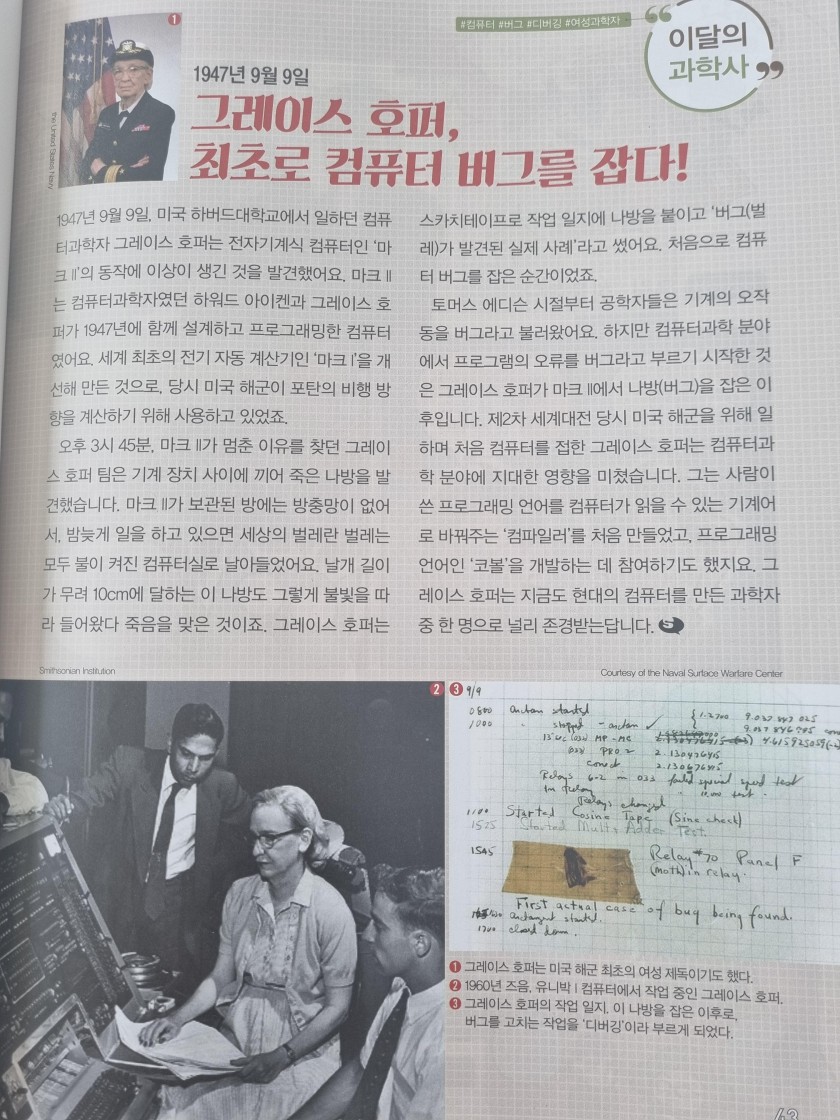 #컴퓨터 #버그 #디버깅 #여성과학자
이달의
과학사
1
the United States Navy
1947년 9월 9일
그레이스 호퍼,
최초로 컴퓨터 버그를 잡다!
1947년 9월 9일, 미국 하버드대학교에서 일하던 컴퓨
터과학자 그레이스 호퍼는 전자기계식 컴퓨터인 ‘마
크 Ⅱ’의 동작에 이상이 생긴 것을 발견했어요. 마크 Ⅱ
는 컴퓨터과학자였던 하워드 아이켄과 그레이스 호
퍼가 1947년에 함께 설계하고 프로그래밍한 컴퓨터
였어요. 세계 최초의 전기 자동 계산기인 ‘마크 Ⅰ’을 개
선해 만든 것으로, 당시 미국 해군이 포탄의 비행 방
향을 계산하기 위해 사용하고 있었죠.
오후 3시 45분, 마크 Ⅱ가 멈춘 이유를 찾던 그레이
스 호퍼 팀은 기계 장치 사이에 끼어 죽은 나방을 발
견했습니다. 마크 Ⅱ가 보관된 방에는 방충망이 없어
서, 밤늦게 일을 하고 있으면 세상의 벌레란 벌레는
모두 불이 켜진 컴퓨터실로 날아들었어요. 날개 길이
가 무려 10cm에 달하는 이 나방도 그렇게 불빛을 따
라 들어왔다 죽음을 맞은 것이죠. 그레이스 호퍼는
스카치테이프로 작업 일지에 나방을 붙이고 ‘버그(벌
레)가 발견된 실제 사례’라고 썼어요. 처음으로 컴퓨
터 버그를 잡은 순간이었죠.
토머스 에디슨 시절부터 공학자들은 기계의 오작
동을 버그라고 불러왔어요. 하지만 컴퓨터과학 분야
에서 프로그램의 오류를 버그라고 부르기 시작한 것
은 그레이스 호퍼가 마크 Ⅱ에서 나방(버그)을 잡은 이
후입니다. 제2차 세계대전 당시 미국 해군을 위해 일
하며 처음 컴퓨터를 접한 그레이스 호퍼는 컴퓨터과
학 분야에 지대한 영향을 미쳤습니다. 그는 사람이
쓴 프로그래밍 언어를 컴퓨터가 읽을 수 있는 기계어
로 바꿔주는 ‘컴파일러’를 처음 만들었고, 프로그래밍
언어인 ‘코볼’을 개발하는 데 참여하기도 했지요. 그
레이스 호퍼는 지금도 현대의 컴퓨터를 만든 과학자
중 한 명으로 널리 존경받는답니다.
Smithsonian Institution
Courtesy of the Naval Surface Warfare Center
2
3
9/9
0800 Antan started
1000 " stopped - antan ✓
{ 1.2700 9.037 847 025
9.037 846 995
13"uc (032) MP - MC 4.615925059(-2)
(033) PRO 2 2.130476415
correct 2.130676415
Relays 6-2 in 033 failed special speed test
in relay " 11.000 test.
Relays changed
1100 Started Cosine Tape (Sine check)
1525 Started Mult+Adder Test.
1545 Relay #70 Panel F
(moth) in relay.
First actual case of bug being found.
antangent started.
1700 closed down.
1 그레이스 호퍼는 미국 해군 최초의 여성 제독이기도 했다.
2 1960년 즈음, 유니박 Ⅰ 컴퓨터에서 작업 중인 그레이스 호퍼.
3 그레이스 호퍼의 작업 일지. 이 나방을 잡은 이후로,
버그를 고치는 작업을 ‘디버깅’이라 부르게 되었다.
63